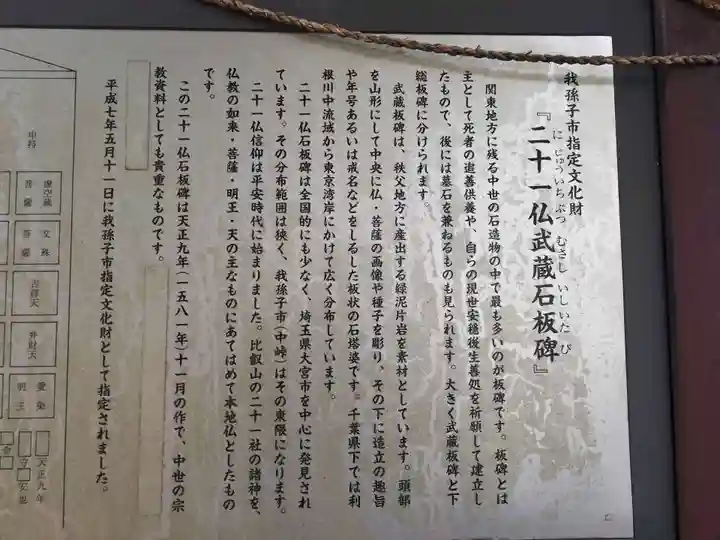 我孫子市指定文化財
『二十一仏武蔵石板碑』
にじゅういちぶつ むさし いしいたび
関東地方に残る中世の石造物の中で最も多いのが板碑です。板碑とは
主として死者の追善供養や、自らの現世安穏後生善処を祈願して建立し
たもので、後には墓石を兼ねるものも見られます。大きく武蔵板碑と下
総板碑に分けられます。
武蔵板碑は、秩父地方に産出する緑泥片岩を素材としています。頭部
を山形にして中央に仏・菩薩の画像や種子を彫り、その下に造立の趣旨
や年号あるいは戒名などをしるした板状の石塔婆です。千葉県下では利
根川中流域から東京湾岸にかけて広く分布しています。
二十一仏石板碑は全国的にも少なく、埼玉県大宮市を中心に発見され
ています。その分布範囲は狭く、我孫子市(中峠)はその東限になります。
二十一仏信仰は平安時代に始まりました。比叡山の二十一社の諸神を、
仏教の如来・菩薩・明王・天の主なものにあてはめて本地仏としたもの
です。
この二十一仏石板碑は天正九年(一五八一年)十一月の作で、中世の宗
教資料としても貴重なものです。
平成七年五月十一日に我孫子市指定文化財として指定されました。
虚空蔵
菩薩
文殊
菩薩
吉祥天
弁財天
愛染
明王
天正九年